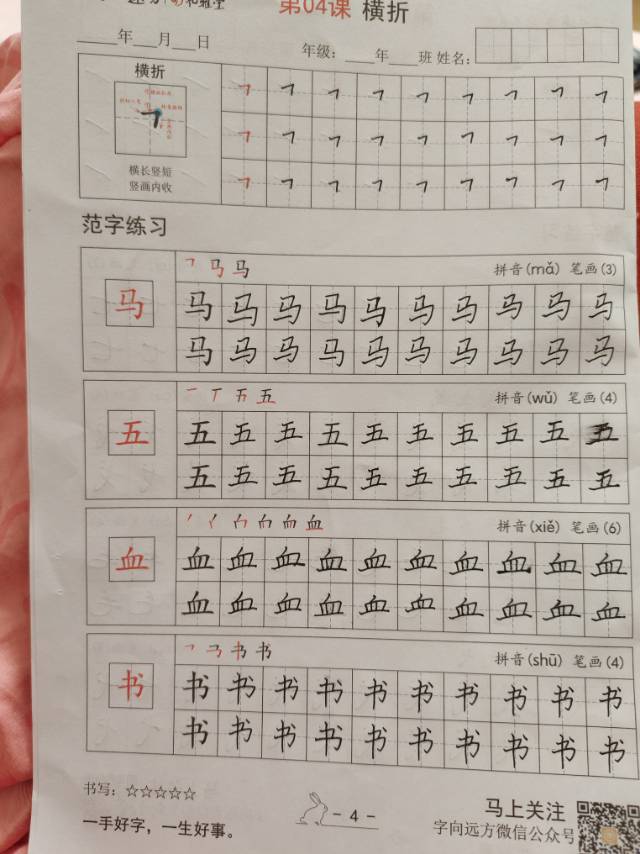 第04课 横折
年 月 日 年级: 年 班 姓名:
横折
横长竖短
竖画内收
㇕ ㇕ ㇕ ㇕ ㇕ ㇕ ㇕ ㇕ ㇕
㇕ ㇕ ㇕ ㇕ ㇕ ㇕ ㇕ ㇕ ㇕
㇕ ㇕ ㇕ ㇕ ㇕ ㇕ ㇕ ㇕ ㇕
范字练习
马 拼音(mǎ) 笔画(3)
马
马 马 马 马 马 马 马 马 马 马
马 马 马 马 马 马 马 马 马 马
五 拼音(wǔ) 笔画(4)
五
五 五 五 五 五 五 五 五 五 五
五 五 五 五 五 五 五 五 五 五
血 拼音(xiě) 笔画(6)
血
血 血 血 血 血 血 血 血 血 血
血 血 血 血 血 血 血 血 血 血
书 拼音(shū) 笔画(4)
书
书 书 书 书 书 书 书 书 书 书
书 书 书 书 书 书 书 书 书 书
书写: ☆☆☆☆☆
一手好字，一生好事。
- 4 -
马上关注
字向远方微信公众号